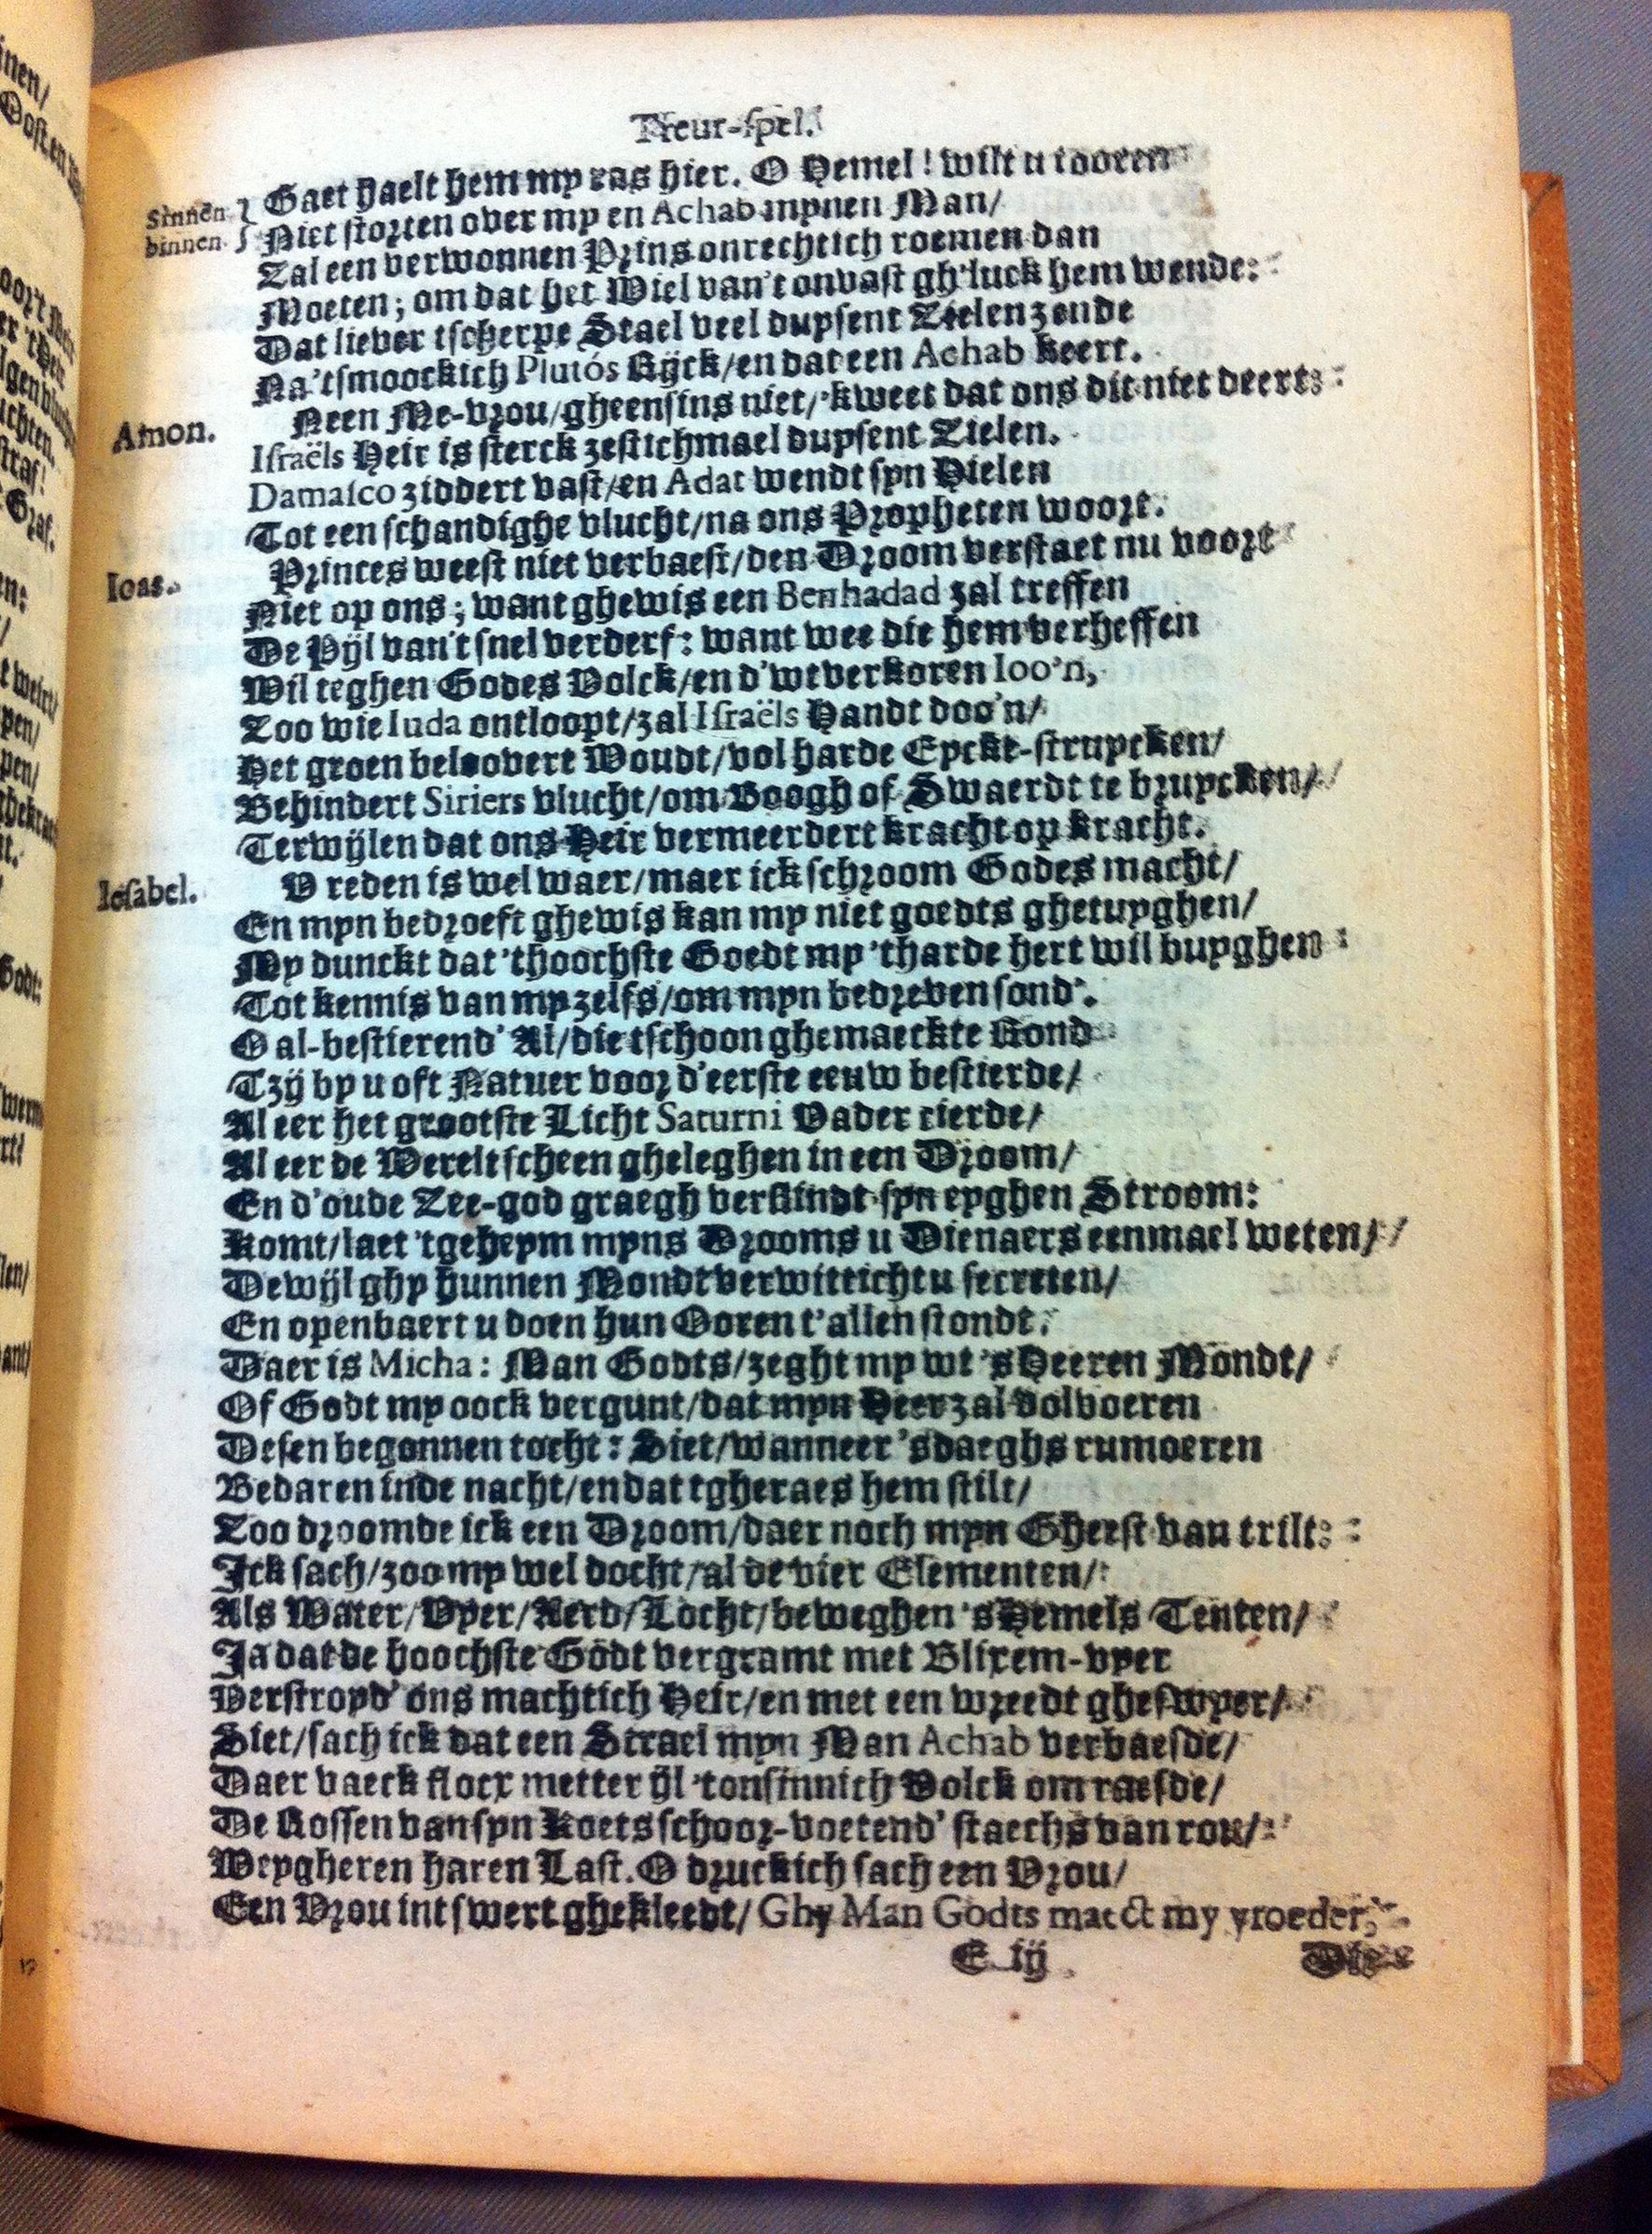 Treur-spel.
Sinnen } Gaet haelt hem my ras hier. O Hemel! wilt u tooren
binnen } Niet storten over my en Achab mynen Man/
Zal een verwonnen Prins onrechtich roemen dan
Moeten; om dat het Wiel van't onvast gh'luck hem wende:
Dat liever tscherpe Stael veel duysent Zielen zende
Na'tsmoockich Plutós Rijck/en dat een Achab keert.
Amon. Neen Me-vrou/gheensins niet/'kweet dat ons dit niet deert:
Israëls Heir is sterck zestichmael duysent Zielen.
Damasco ziddert vast/en Adat wendt syn Hielen
Tot een schandighe vlucht/na ons Propheten woort.
Ioas. Princes weest niet verbaest/den Droom verstaet nu voort
Niet op ons; want ghewis een Benhadad zal treffen
De Pijl van't snel verderf: want wee die hem verheffen
Wil teghen Godes Volck/en d'wtverkoren Ioo'n,
Zoo wie Iuda ontloopt/zal Israëls Handt doo'n/
Het groen beloovert Woudt/vol harde Eyckt-struycken/
Behindert Siriers vlucht/om Boogh of Swaerdt te bruycken/
Terwijlen dat ons Heir vermeerdert kracht op kracht.
Iesabel. V reden is wel waer/maer ick schroom Godes macht/
En myn bedroeft ghewis kan my niet goedts ghetuyghen/
My dunckt dat 'thoochste Goedt my 'tharde hert wil buyghen:
Tot kennis van my zelfs/om myn bedreven sond'.
O al-bestierend' Al/die tschoon ghemaeckte Rond
Tzy by u oft Natuer voor d'eerste eeuw bestierde/
Al eer het grootste Licht Saturni Vader cierde/
Al eer de Werelt scheen gheleghen in een Droom/
En d'oude Zee-god graegh verslindt syn eyghen Stroom:
Komt/laet 'tgeheym myns Drooms u Dienaers eenmael weten/
Dewijl ghy hunnen Mondt verwitticht u secreten/
En openbaert u doen hun Ooren t'allen stondt.
Daer is Micha: Man Godts/zeght my wt 's Heeren Mondt/
Of Godt my oock vergunt/dat myn Heer zal volvoeren
Desen begonnen tocht: Siet/wanneer 'sdaeghs rumoeren
Bedaren inde nacht/en dat tgheraes hem stilt/
Zoo droomde ick een Droom/daer noch myn Gheest van trilt:
Ick sach/zoo my wel docht/al de vier Elementen/
Als Water/Vyer/Aerd/Locht/beweghen 's Hemels Tenten/
Ja dat de hoochste Godt vergramt met Blixem-vyer
Verstroyd' ons machtich Heir/en met een wreedt gheswyer/
Siet/sach ick dat een Strael myn Man Achab verbaesde/
Daer vaeck flocx metter ijl 'tonsinnich Volck om raesde/
De Rossen van syn Koets schoor-voetend' staechs van rou/
Weygheren haren Last. O druckich sach een Vrou/
Een Vrou int swert ghekleedt/ Ghy Man Godts maeckt my vroeder,
E iij Die